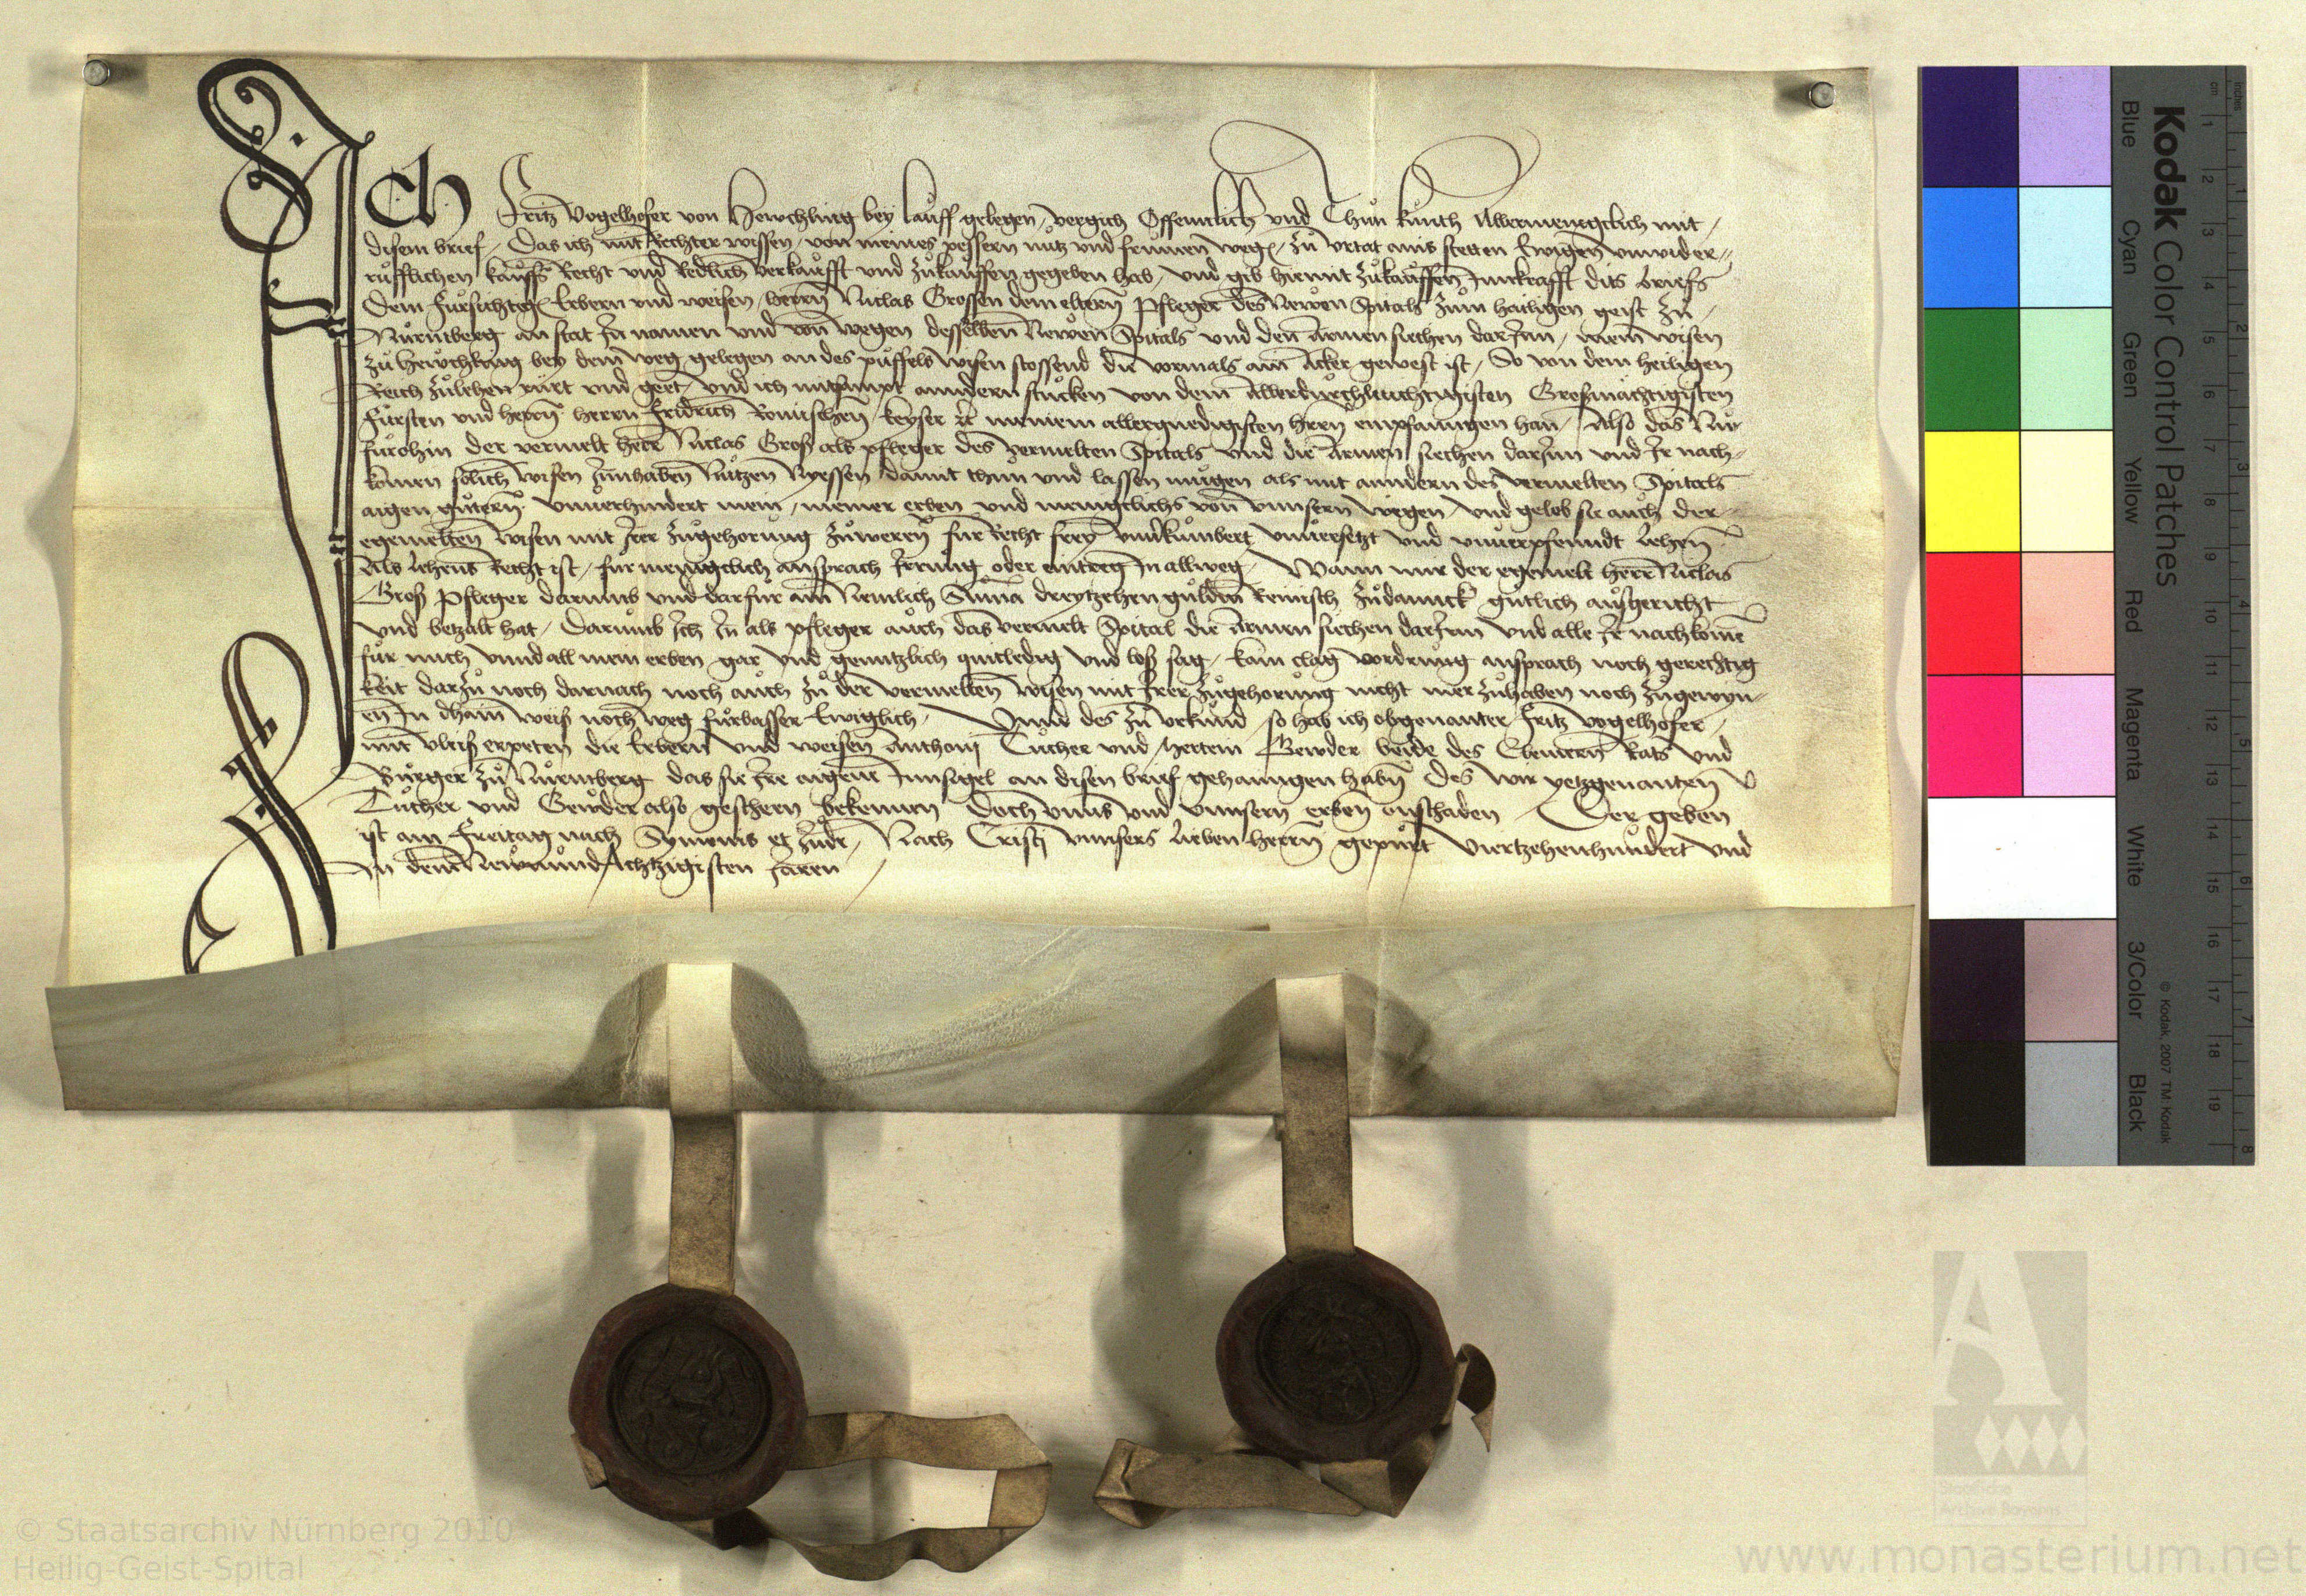 Ich Fritz Vogelhofer von Hewchling bey Lauff gelegen, vergich Offennlich vnd Thun kunth Allermenigclich mit,
disem brief, Das ich mit Rechter wissen, von meines pessern nutz vnd frumen weg, zu vrtat ains stetten Ewigen vnwider,,
rufflichen kauffs Recht vnd Redlich verkaufft vnd zukauffen gegeben hab, vnd gib hiemit zukauffen Inn krafft dits briefs
Dem fursichtig Erbern vnd weisen, herrn Niclas Grossen dem eltern Pfleger des Newen Spitals zum hailigen geist zu,
Nurmberg an stat In namen vnd von wegen desselben Newen Spitals vnd den Armen siechen darInn, mein wisen
zu hewchling bey dem weg gelegen an des puffels wisen stossend die vormals ain Acker gewest ist, So von dem heiligen
Reich zulehen rurt vnd geet, vnd ich mitsampt anndern stucken von dem Allerdurchleuchtigisten Grosmächtigisten
fursten vnd herrn herrn Fridrich Romischen keyser etc meinem allergnedigisten hern empfanngen han, Also das Nu
furohin der vermelt herr Niclas Groß als pfleger des vermelten Spitals vnd die Armen siechen darInn vnd Ir nach,,
komen solich wisen Innhaben Nutzen Nyessen damit thun vnd lassen mugen als mit anndern des vermelten Spitals
aigen gutern. vnuerhindert mein, meiner erben vnd menigclichs von vnnsern wegen, vnd gelob sie auch der,
egemelten wisen mit Irer zugehorung zuweren fur Recht frey vnuerkumbert vnuersetzt vnd vnuerpfenndt Lehen
Als Lehens Recht ist, fur menigclich ansprach Irrung oder eintreg In allweg, Wann mir der egemelt herr Niclas
Groß Pfleger darumb vnd darfur ain Nemlich Suma dreytzehen guldin Reinisch zudannck gutlich außgericht
vnd betzalt hat, Darumb Ich In als pfleger auch das vermelt Spital die Armen siechen darInn vnd alle Ir nachkome
fur mich vnnd all mein erben gar vnd genntzlich quitledig vnd loß sag, kain clag vordrung ansprach noch gerechtig
keit darzu noch darnach noch auch zu der vermelten wisen mit Irer zugehorung nicht mer zuhaben noch zugewyn,,
en In dhain weiß noch weg furbasser Ewiglich, Vnnd des zu vrkund so hab ich obgenanter Fritz Vogelhofer,
mit vleiß erpeten die Erbern vnd weisen Anthonj Tucher vnd hertein Gewder beide des Clainern Rats vnd
Burger zu Nurmberg das sie Ire aigene Innsigel an disen brief gehanngen habn Des wir yetzgenanten
Tucher vnd Gewder also geschern bekennen Doch vnns vnd vnnsern erben onschaden, Der geben
ist am Freitag nach Symonis et Jude, Nach Cristj vnnsers Lieben herrn gepurt Viertzehenhundert vnd
In dem Newnundachtzigisten Jaren
Kodak Color Control Patches
Blue Cyan Green Yellow Red Magenta White 3/Color Black
© Kodak, 2007 TM: Kodak
cm 1 2 3 4 5 6 7 8 9 10 11 12 13 14 15 16 17 18 19
inches 1 2 3 4 5 6 7 8
Staatliche
Archive Bayerns
© Staatsarchiv Nürnberg 2010
Heilig-Geist-Spital
www.monasterium.net